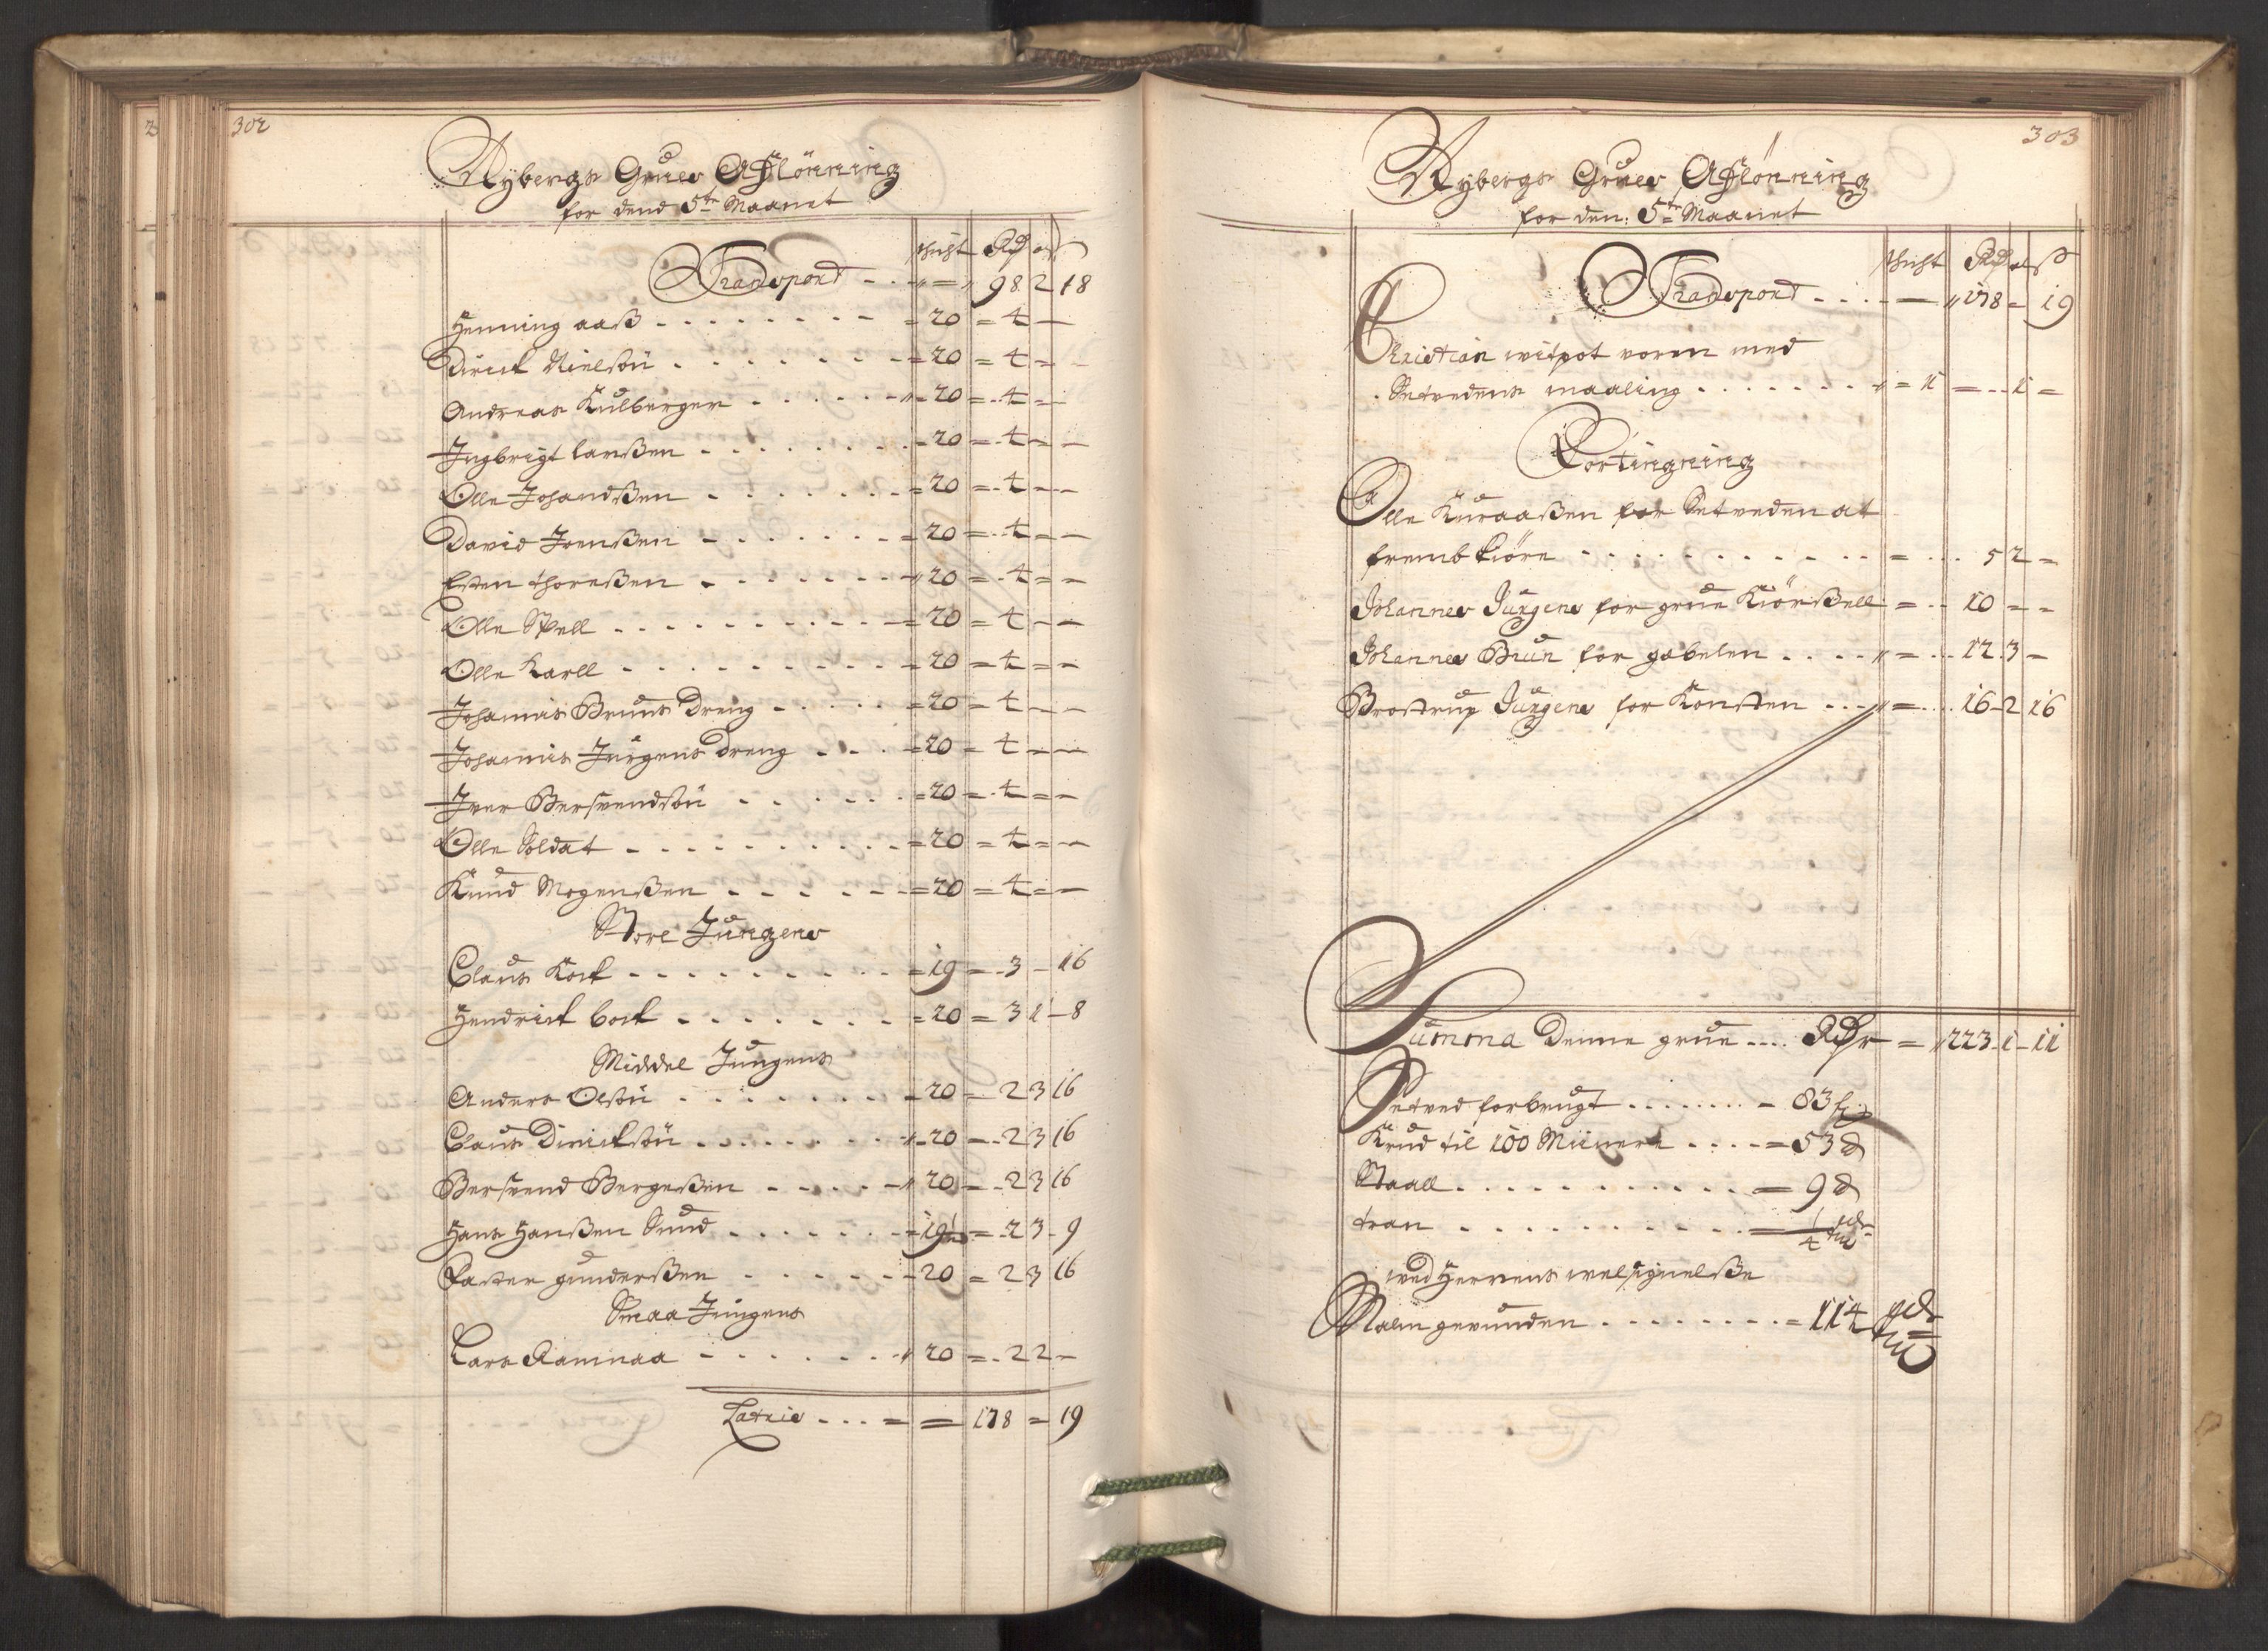 302
Nybergs Grues Afflönning
for dend 5te Maanet
shicht Rdr ort ß
Transport - - - 98 2 18
Henning aaß - - - - - = 20 = 4 -
Dirick Nielsøn - - - - - = 20 = 4 = -
Andreas Kulberger - - - - - 20 = 4 =
Ingbrigt Larßen - - - - - 20 = 4 = -
Olle Johandßen - - - - - = 20 = 4 - -
David Joenßen - - - - - = 20 = 4 = -
Esten Thoreßen - - - - - 20 = 4 = -
Olle Skell - - - - - = 20 = 4 - -
Olle Karll - - - - - = 20 = 4 = -
Johannis Bruns Dreng - - - - = 20 = 4 - -
Johannis Jürgens Dreng - - - = 20 = 4 - -
Iver Berswendsøn - - - - - = 20 = 4 = -
Olle Soldat - - - - - = 20 = 4 = -
Knud Mogenßen - - - - - = 20 = 4 = -
Store Jungens
Claus Kock - - - - - = 19 = 3 - 16
Hendrick bock - - - - - = 20 = 3 1 - 8
Middel Jungens
Anders Olsøn - - - - - 20 = 2 3 16
Claus Diricksøn - - - - - 20 = 2 3 16
Berswend Bergeßen - - - - - 20 = 2 3 16
Hans Hanßen Sund - - - - - = 19½ = 2 3 - 9
Paster gunderßen - - - - - 20 = 2 3 16
Smaa Jungens
Lars Ramnaa - - - - - 20 = 2 2 -
Latris - - - = = 178 = 19
303
Nybergs Grues Afflönning
for den: 5te Maanet
shicht Rdr ort ß
Transport - - - - 178 = 19
Christian witpot voren med
Setvedens maaling - - - - - = 1 = - - 1 =
Fortingning
Olle Knraaßen for Setveden at
frembkiöre - - - - - = - - 5 2 =
Johannes Jürgens for grue Kiörßell = - - 10 = =
Johannes Brun for gabelen - - - - = - - 12 3 =
Brostrup Jürgens for Konsten - - - = - - 16 - 2 16
Summa Denne grue .... Rdr = 223 - 1 - 11
Setved forbrugt - - - - - = 83 f
Krud til 100 Miinere - - - - = 53 ℔
Staall - - - - - = 9 ℔
tran - - - - - = 1/4 tdr
wed Herrens welsignelße
Malm gevunden - - - - - = 114 tdr